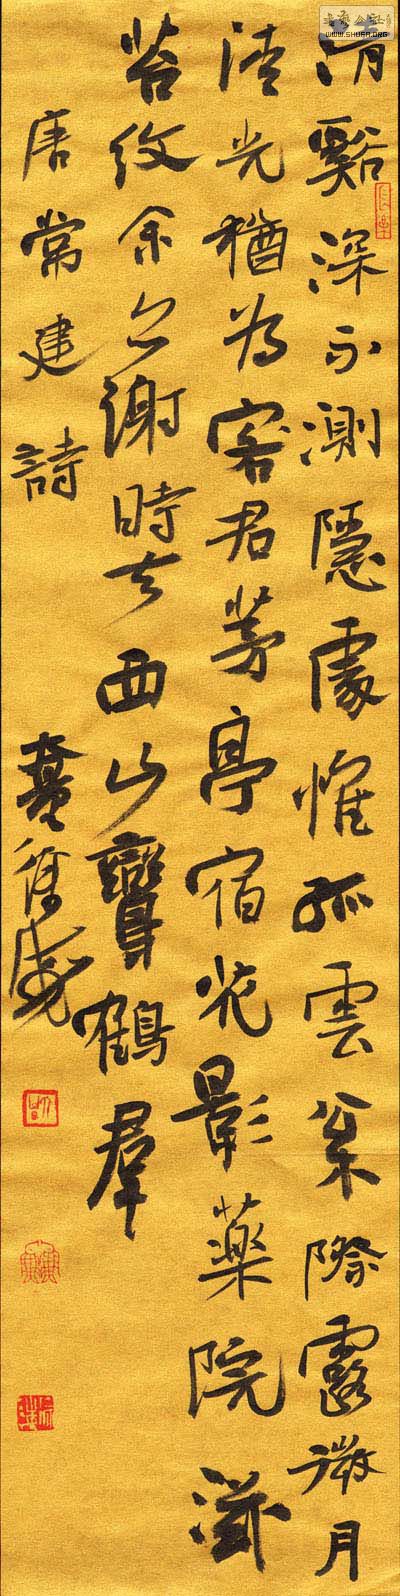 清谿深不測隱處惟孤雲枀際露微月
清光猶為客君茅亭宿花影藥院滋
苔紋余亦謝時去西山鸞鶴羣
唐常建詩
WWW.SHUFA.ORG